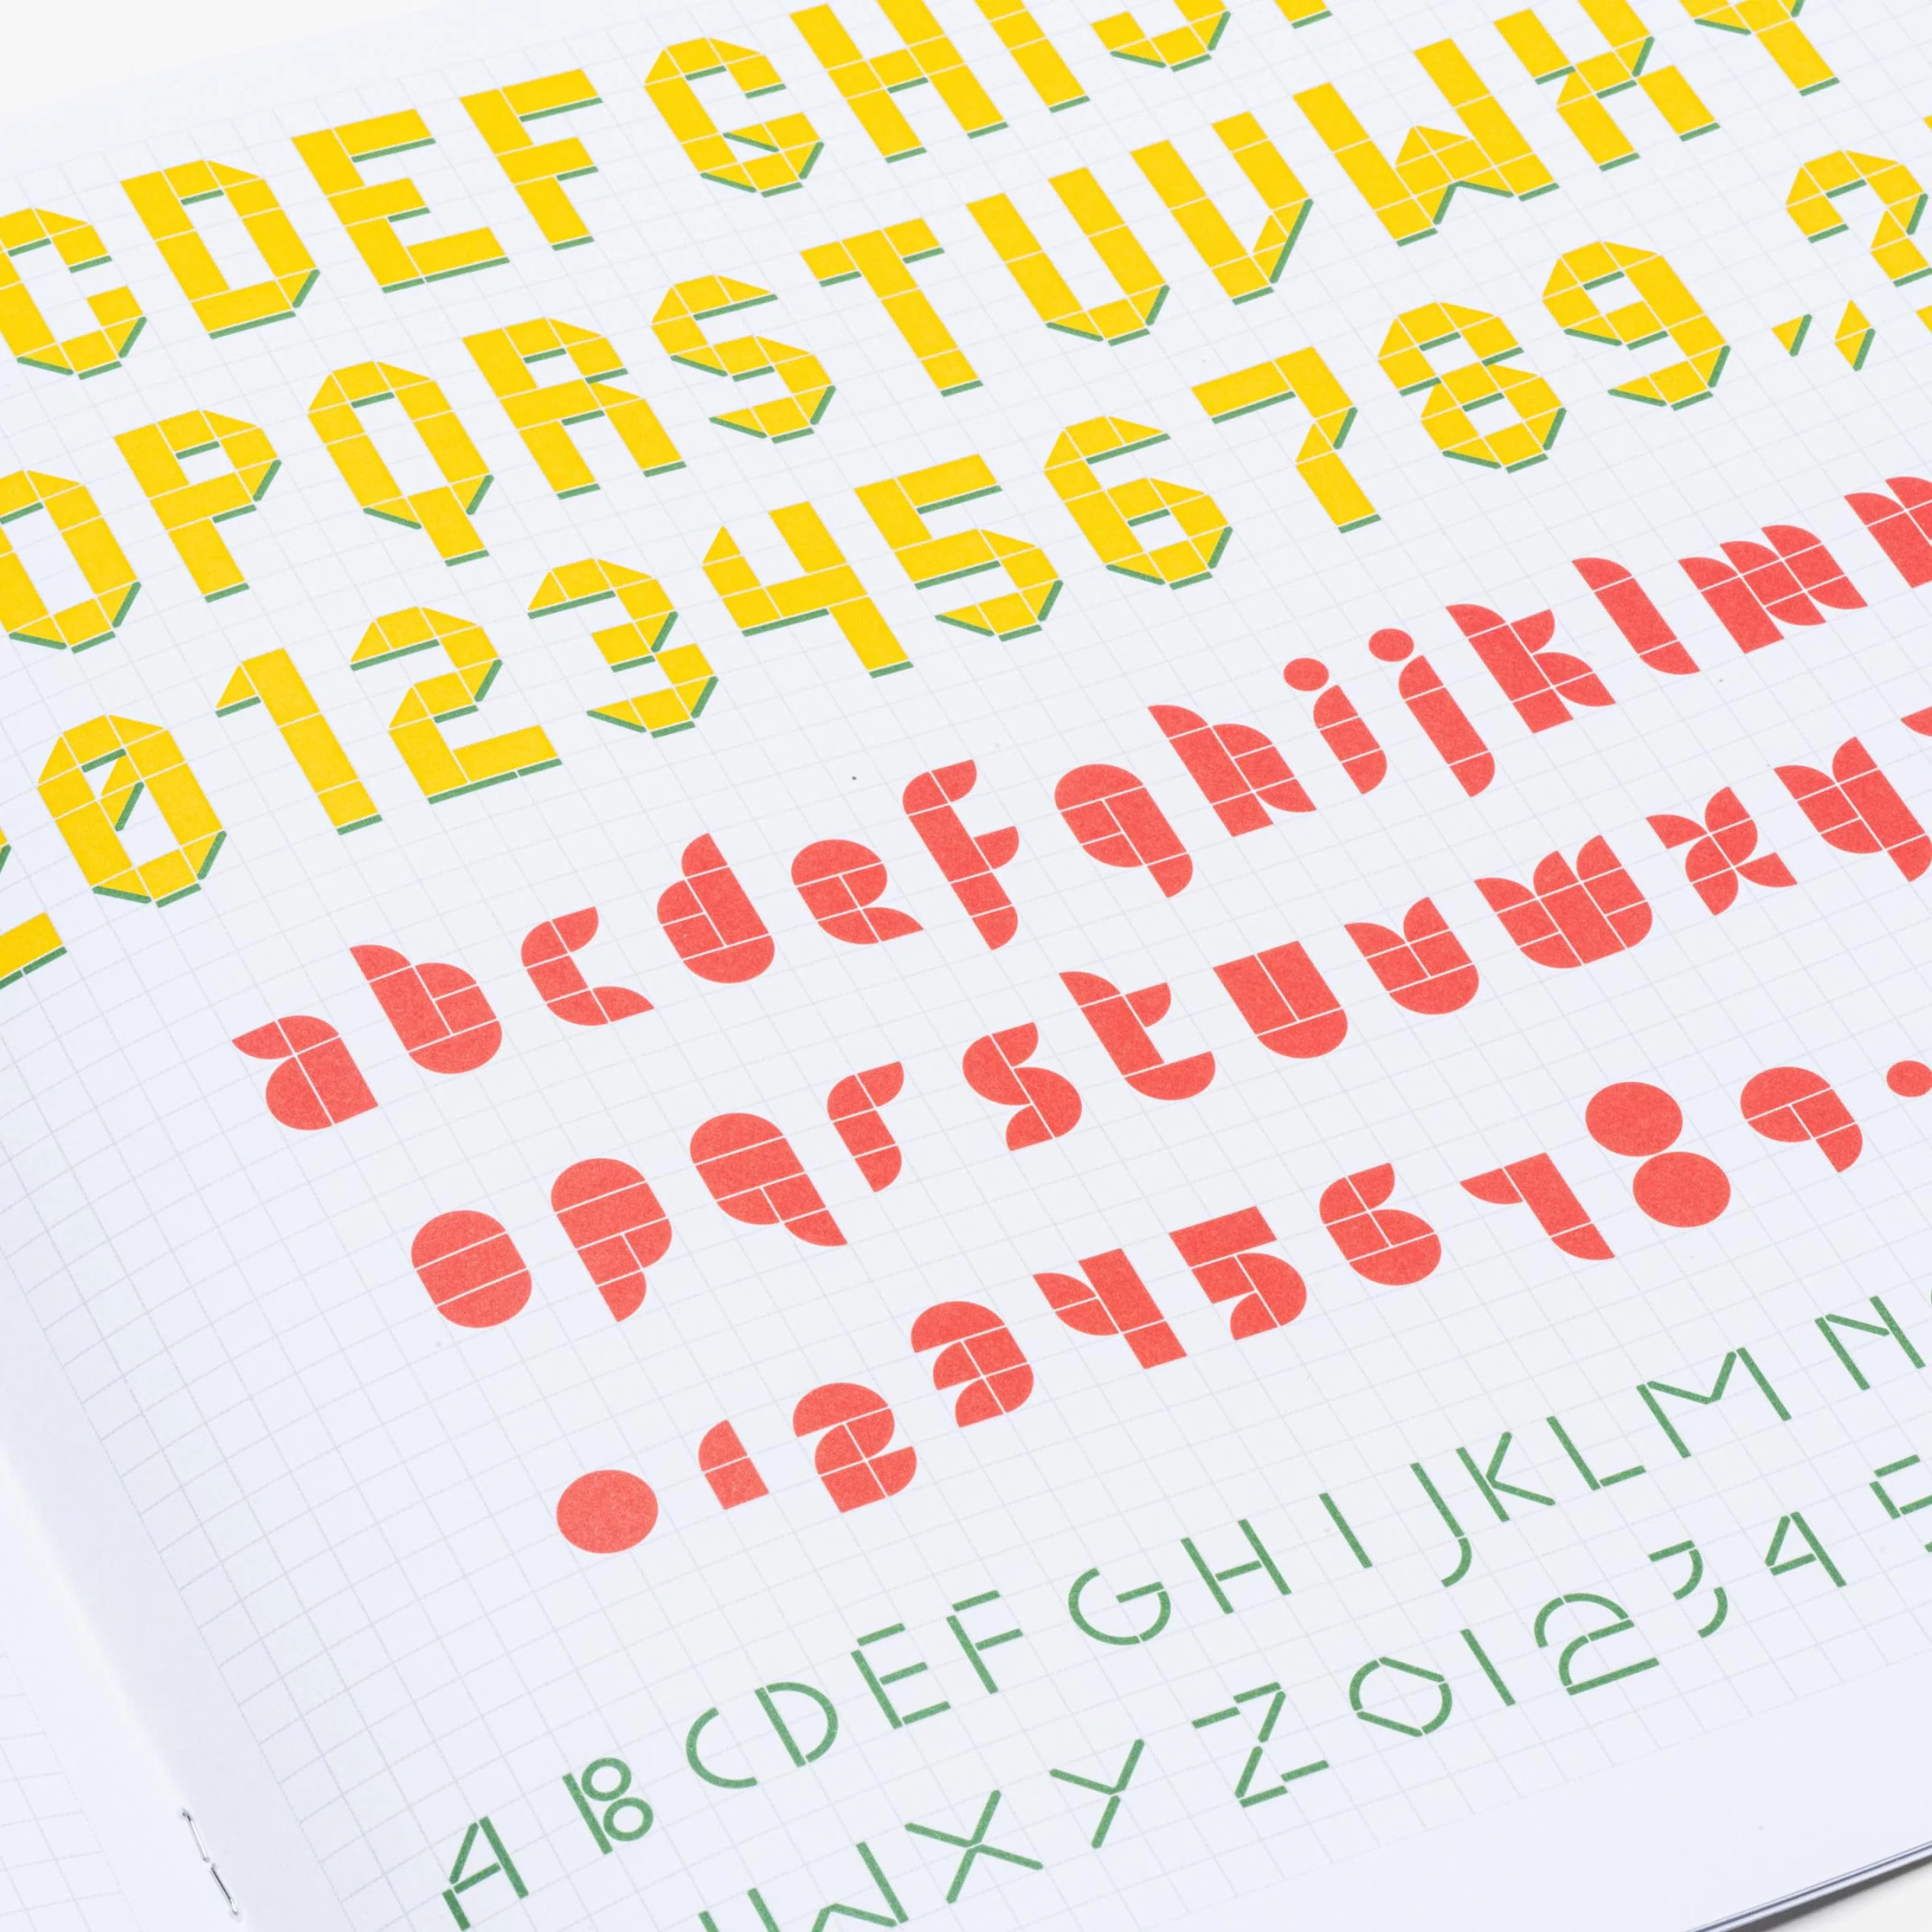 C D E F G H I J
O P Q R S T U V W X Y
0 1 2 3 4 5 6 7 8 9 , ?
a b c d e f g h i j k l m n
o p q r s t u v w x y
0 1 2 3 4 5 6 7 8 9 .
A B C D E F G H I J K L M N
W X Y Z 0 1 2 3 4 5